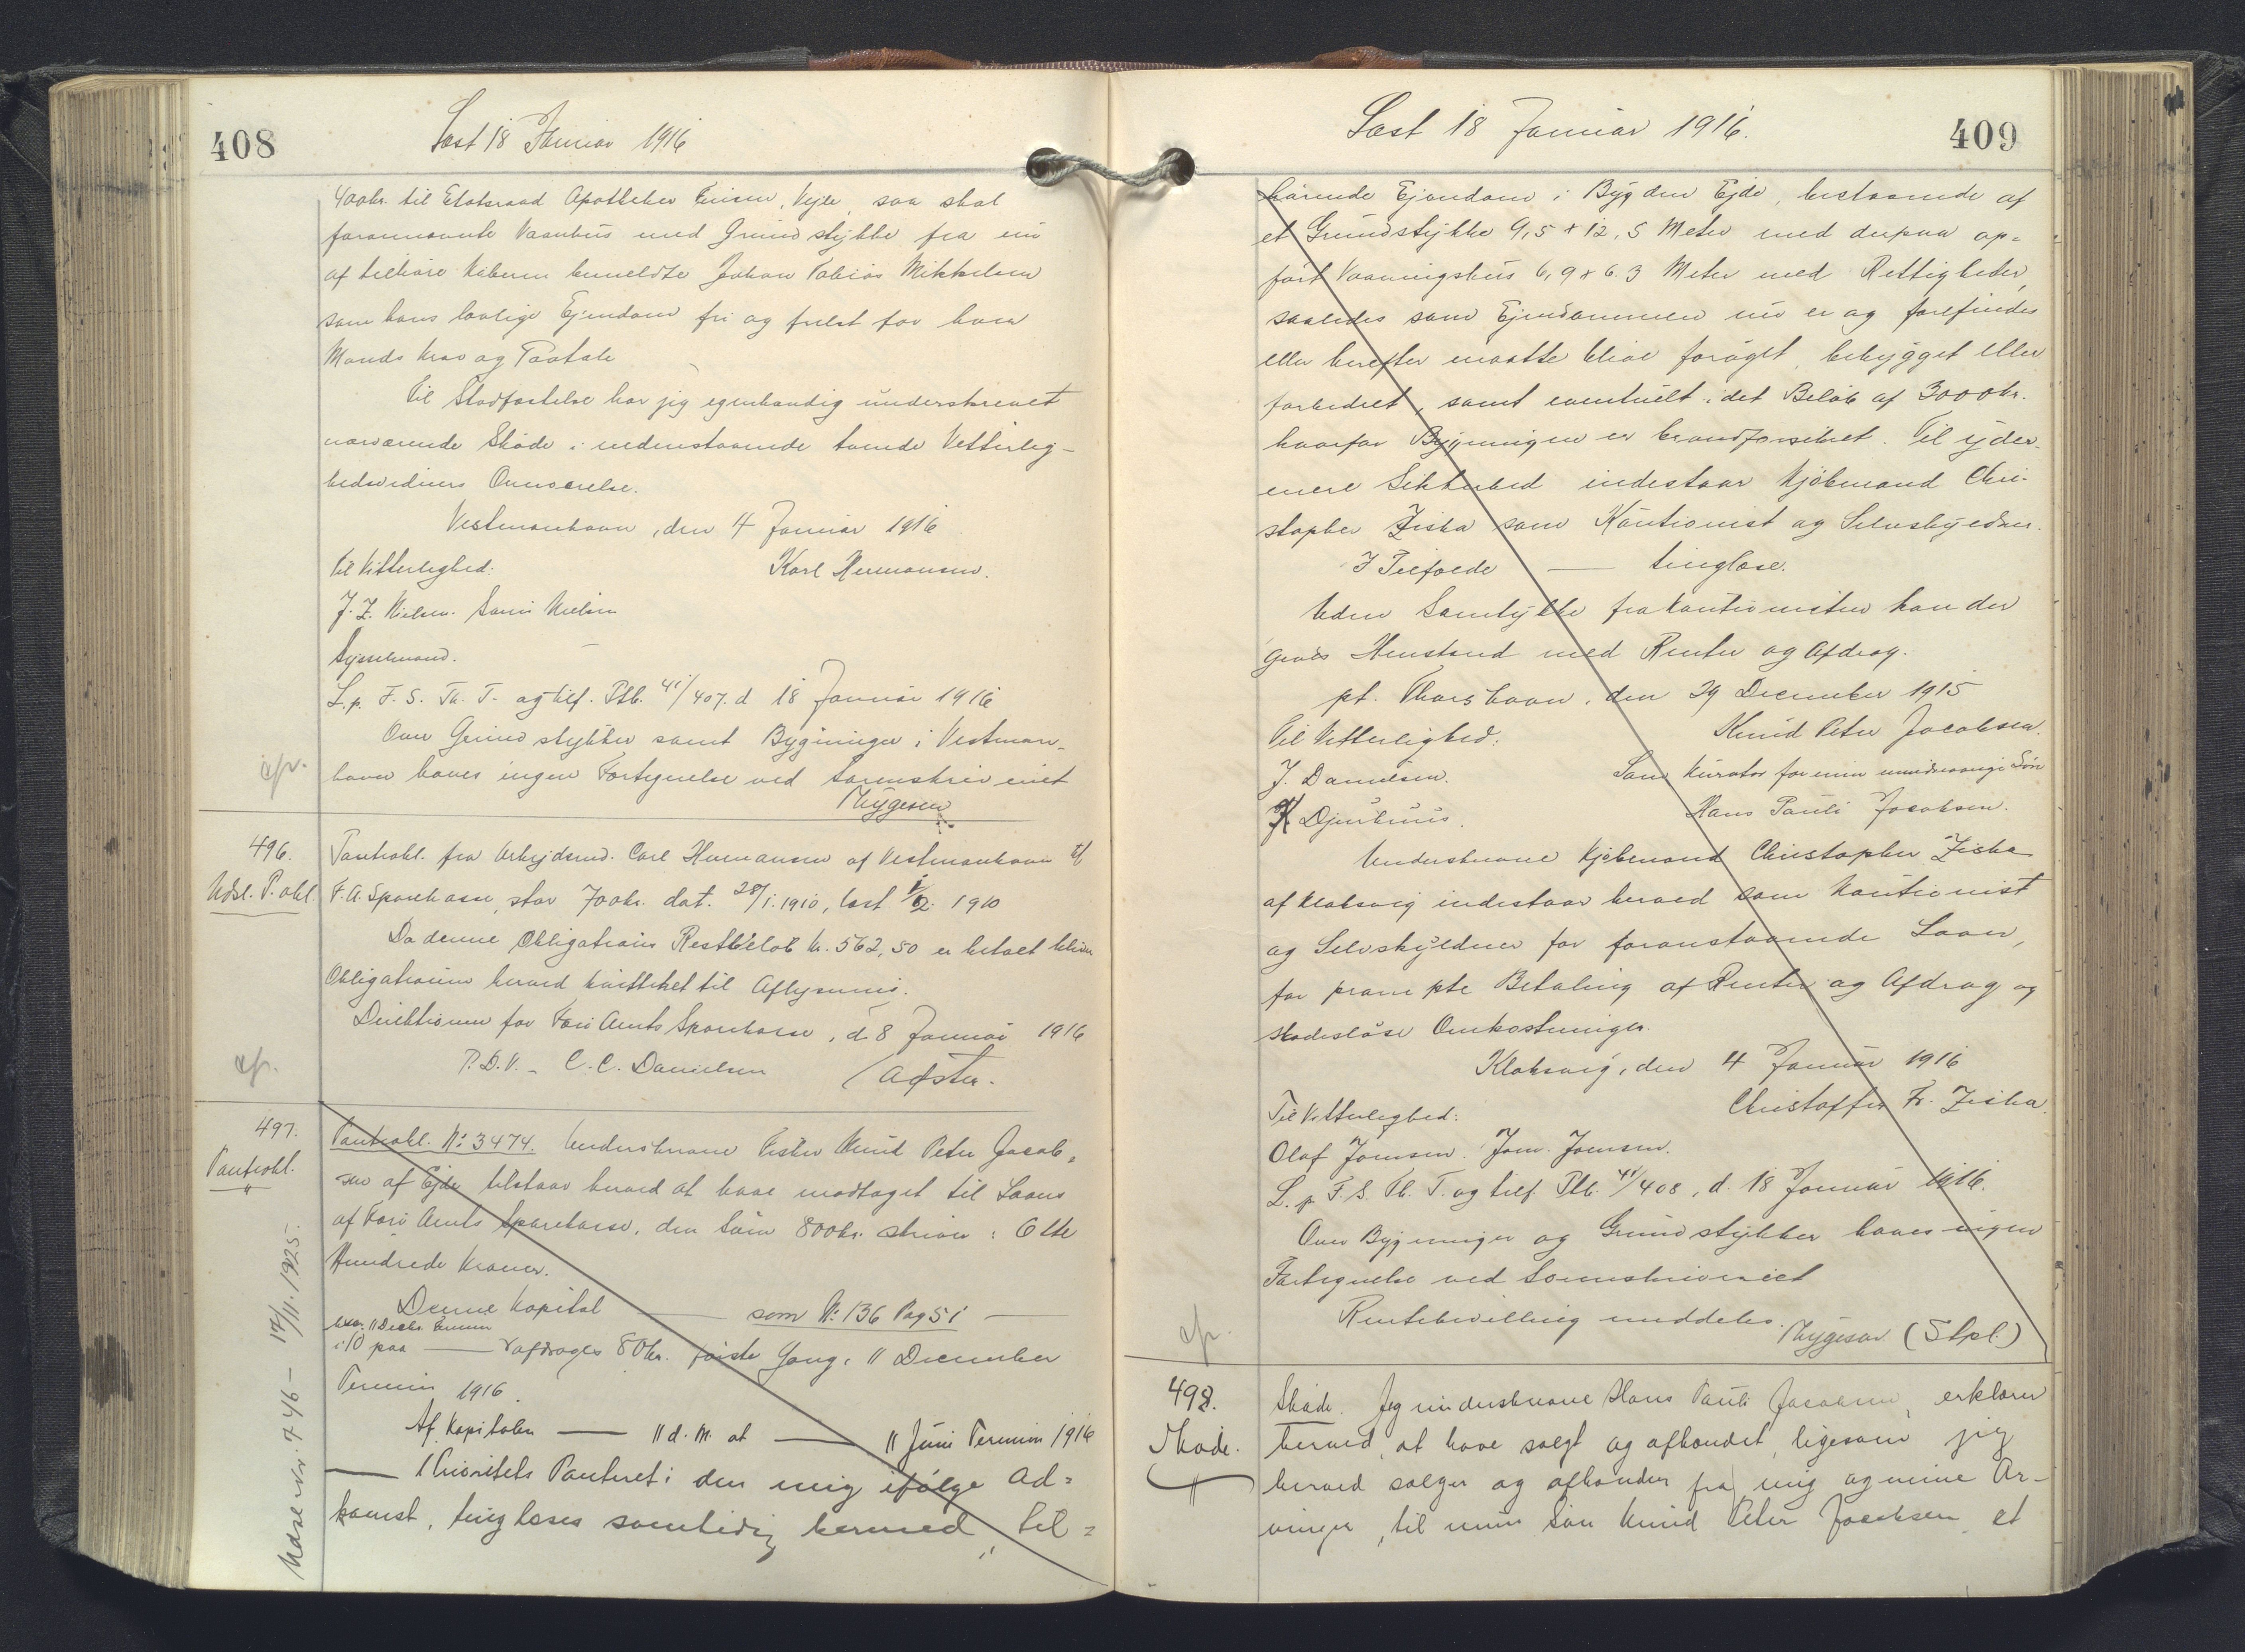 408
Læst 18 Januar 1916
400kr. til Etatsraad Apotheker Vejle, saa skal
forannævnte Vaanhus med Grundstykke fra nu
af tilhøre Køberen bemeldte Johan Tobias Mikkelsen
som hans lovlige Ejendom fri og frelst for hver
Mands Krav og Paatale
Til Stadfæstelse har jeg egenhændig underskrevet
nærværende Skøde i nedenstaaende tvende Vitterlig-
hedsvidners Overværelse.
Vestmanhavn, den 4 Januar 1916
Til Vitterlighed: Karl Hermansen.
J. Z. Nielsen. Nielsen
Sysselmand.
L. p. F. S. Th. T. og tilf. Ptb. 41/407. d 18 Januar 1916
Over Grundstykker samt Bygninger i Vestman-
havn haves ingen Fortegnelse ved Sorenskriveriet
cfr. Thygesen
496. Pantobl. fra Arbejdsmd. Carl Hermansen af Vestmanhavn t/
Udsl. P. obl. F. A. Sparekasse, stor 700kr. dat. 28/1. 1910, læst 1/2 1910
Da denne Obligations Restbeløb Kr. 562,50 er betalt bliver
Obligationen herved kvitteret til Aflysning.
Direktionen for Færø Amts Sparekasse, d. 8 Januar 1916
cfr. P.D.V. - C.C. Danielsen / Aafster.
497. Pantobl. No 3474. Underskrevne Fisker Knud Peter Jacob=
Pantobl. sen af Ejde tilstaar herved at have modtaget til Laans
af Færø Amts Sparekasse, den Sum 800kr. skriver: Otte
Hundrede Kroner.
Denne Kapital — som No 136 Pag 51 —
hver 11 Decbr. Termin
i 10 paa — afdrages 80kr. første Gang i 11 December
Termin 1916.
Af Kapitalen — 11 d. M. at — 11 Juni Termin 1916
— 1 Prioritets Panteret i den mig ifølge Ad=
komst, tinglæses samtidig hermed, til=
Udsl. Nr. 746 — 17/11. 1925.
Læst 18 Januar 1916.
409
hørende Ejendom i Bygden Ejde, bestaaende af
et Grundstykke 9,5 x 12,5 Meter med derpaa op=
ført Vaaningshus 6,9 x 6.3 Meter med Rettigheder,
saaledes som Ejendommen nu er og forefindes
eller herefter maatte blive forøget, bebygget eller
forbedret, samt eventuelt i det Beløb af 3000kr.
hvorfor Bygningen er brandforsikret. Til yder-
mere Sikkerhed indestaar Kjøbmand Chri-
stopher Ziska som Kautionist og Selvskyldner.
I Tilfælde — tinglæse.
Uden Samtykke fra Kautionisten kan der
gives Henstand med Renter og Afdrag.
pt. Thorshavn, den 29 December 1915
Til Vitterlighed: Knud Peter Jacobsen.
J. Danielsen. Som Kurator for min umindreaarige Søn
Djurhuus. Hans Pauli Jacobsen.
Underskrevne Kjøbmand Christopher Ziska
af Klaksvig indestaar herved som Kautionist
og Selvskyldner for foranstaaende Laan,
for prompte Betaling af Renter og Afdrag og
skadesløse Omkostninger.
Klaksvig, den 4 Januar 1916
Til Vitterlighed: Christoffer Fr. Ziska.
Olaf Joensen. Joen. Joensen.
L. p. F. S. Th. T. og tilf. Ptb. 41/408, d. 18 Januar 1916.
Over Bygninger og Grundstykker haves ingen
Fortegnelse ved Sorenskriveriet
Rentebevilling meddeles.
cfr. Thygesen (Stpl.)
498. Skøde. Jeg underskrevne Hans Pauli Jacobsen, erklærer
Skøde. herved, at have solgt og afhændet, ligesom jeg
herved sælger og afhænder fra mig og mine Ar-
vinger, til min Søn Knud Peter Jacobsen et